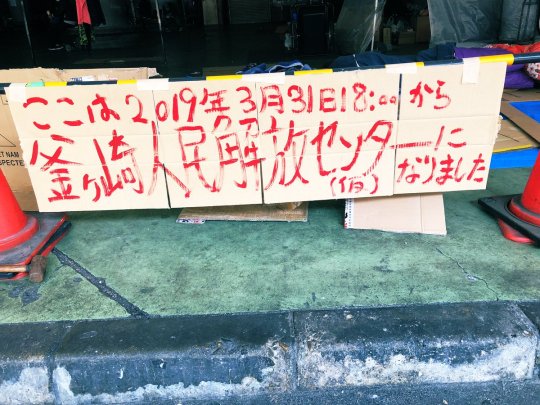 ここは2019年3月31日18:00から
釜ヶ崎人民解放センターに
(仮)なりました